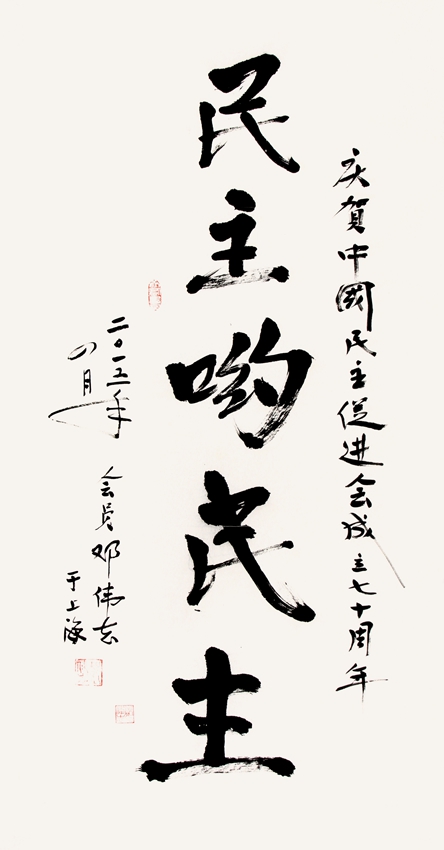 庆贺中國民主促进会成立七十周年
民主哟民主
二〇一五年
四月
会员邓伟志
于上海